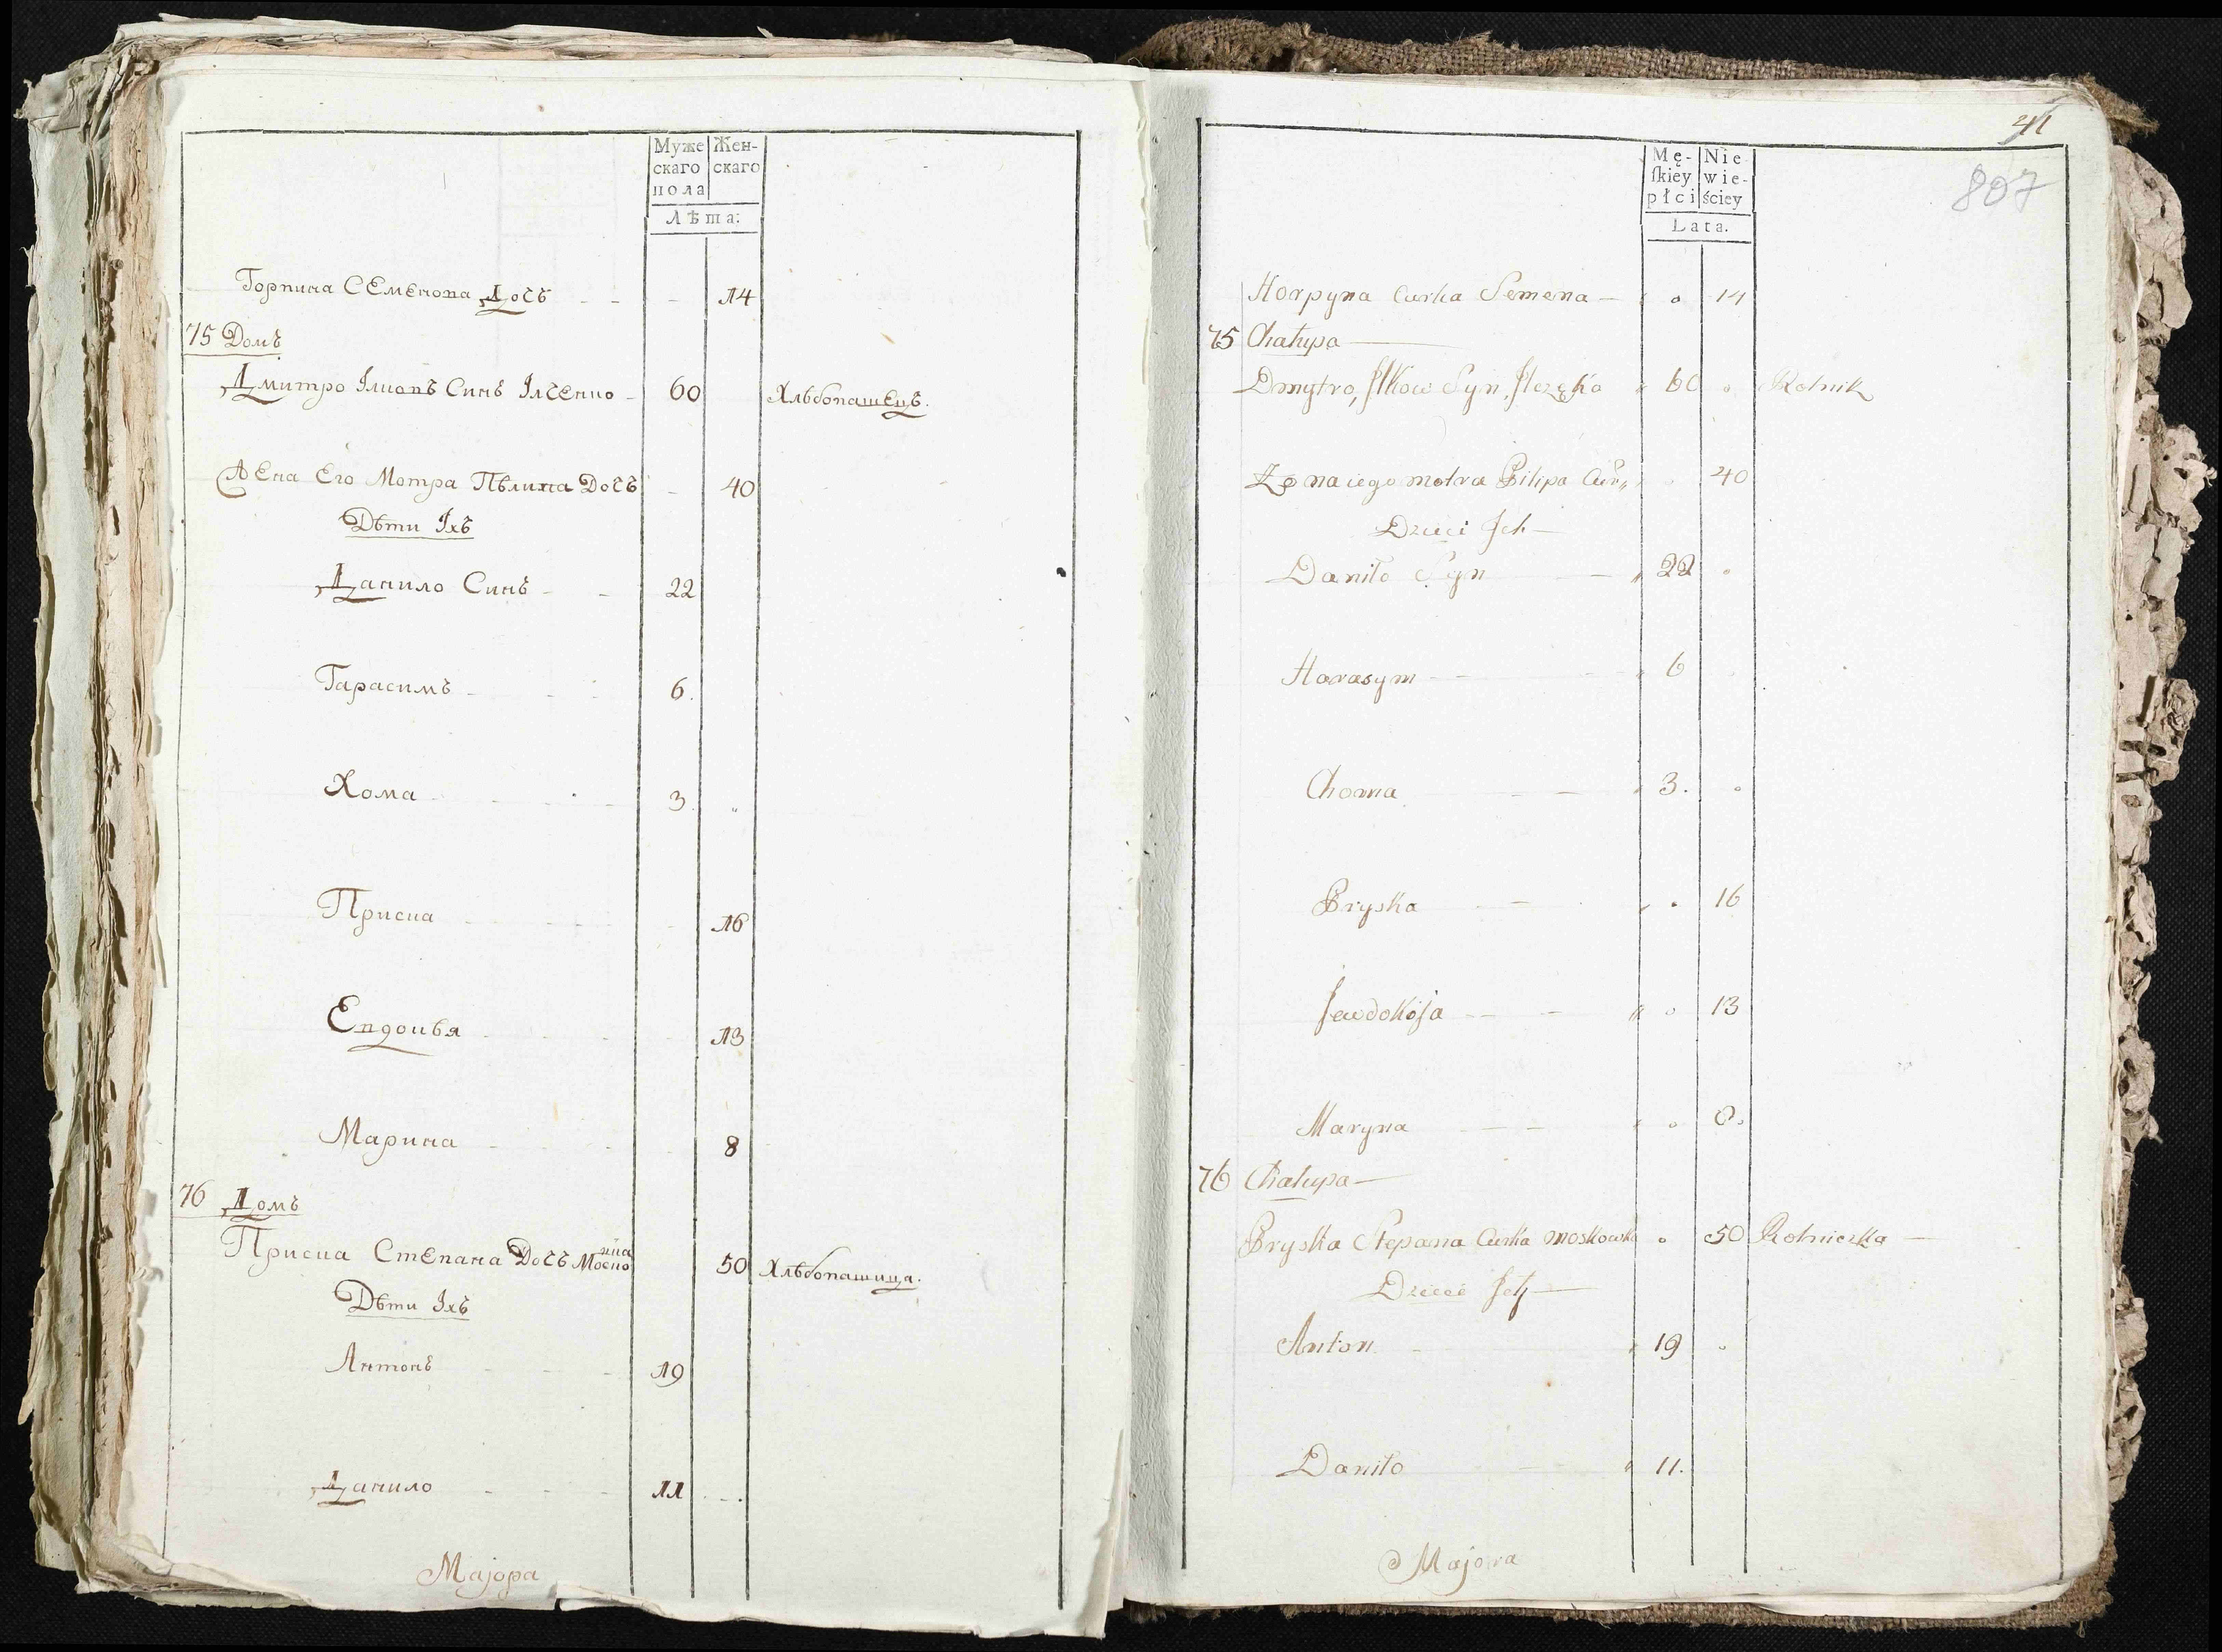 Муже Жен-
скаго скаго
пола
Лѣта:
Горпина Семенова Дочъ 14
75 Домъ
Дмитро Ілковъ Синъ Ілченко 60 Хлѣбопашецъ.
Жена Его Мотра Пѣлипа Дочъ 40
Дѣти Іхъ
Данило Синъ 22
Гарасимъ 6.
Хома 3
Приска 16
Евдокѣя 13
Марина 8
76 Домъ
Приска Степана Дочъ 50 Хлѣбопашица.
Дѣти Іхъ
Антонъ 19
Данило 11
Маjора
41
807
Mę- Nie
ſkiey wie-
płci ściey
Lata.
Horpyna Curka Semena 14
75 Chałupa
Dmytro, Ilkow Syn, Ilczęko 60 Rolnik
Żona iego motra Pilipa Cur 40
Dzieci Ich
Daniło Syn 22
Harasym 6
Choma 3.
Pryska 16
Jewdokija 13
Maryna 8.
76 Chałupa
Pryska Stepana Curka moskowka 50 Rolniczka
Dzieci Ich
Anton 19
Daniło 11.
Majora